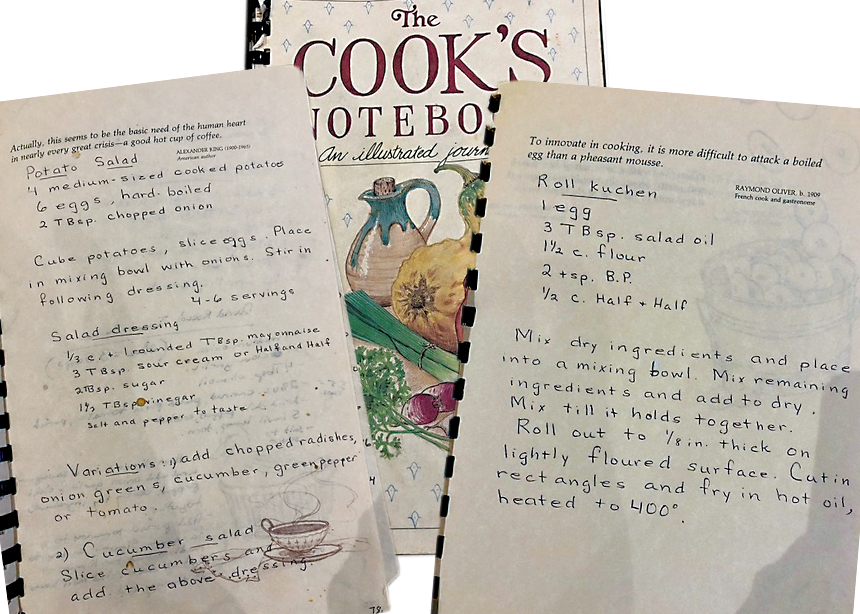 The
COOK'S
NOTEBO
An illustrated journ
Actually, this seems to be the basic need of the human heart
in nearly every great crisis—a good hot cup of coffee.
ALEXANDER KING (1900-1965)
American author
Potato Salad
4 medium-sized cooked potatoes
6 eggs, hard-boiled
2 TBsp. chopped onion
Cube potatoes, slice eggs. Place
in mixing bowl with onions. Stir in
following dressing.
4-6 servings
Salad dressing
1/3 c. + 1 rounded TBsp. mayonnaise
3 TBsp. sour cream or Half and Half
2 TBsp. sugar
1 1/2 TBsp. vinegar
salt and pepper to taste
Variations: 1) add chopped radishes,
onion greens, cucumber, green pepper
or tomato.
2) Cucumber salad
Slice cucumbers and
add the above dressing.
78
To innovate in cooking, it is more difficult to attack a boiled
egg than a pheasant mousse.
RAYMOND OLIVER, b. 1909
French cook and gastronome
Roll kuchen
1 egg
3 TBsp. salad oil
1 1/2 c. flour
2 tsp. B.P.
1/2 c. Half + Half
Mix dry ingredients and place
into a mixing bowl. Mix remaining
ingredients and add to dry.
Mix till it holds together.
Roll out to 1/8 in. thick on
lightly floured surface. Cut in
rectangles and fry in hot oil,
heated to 400°.